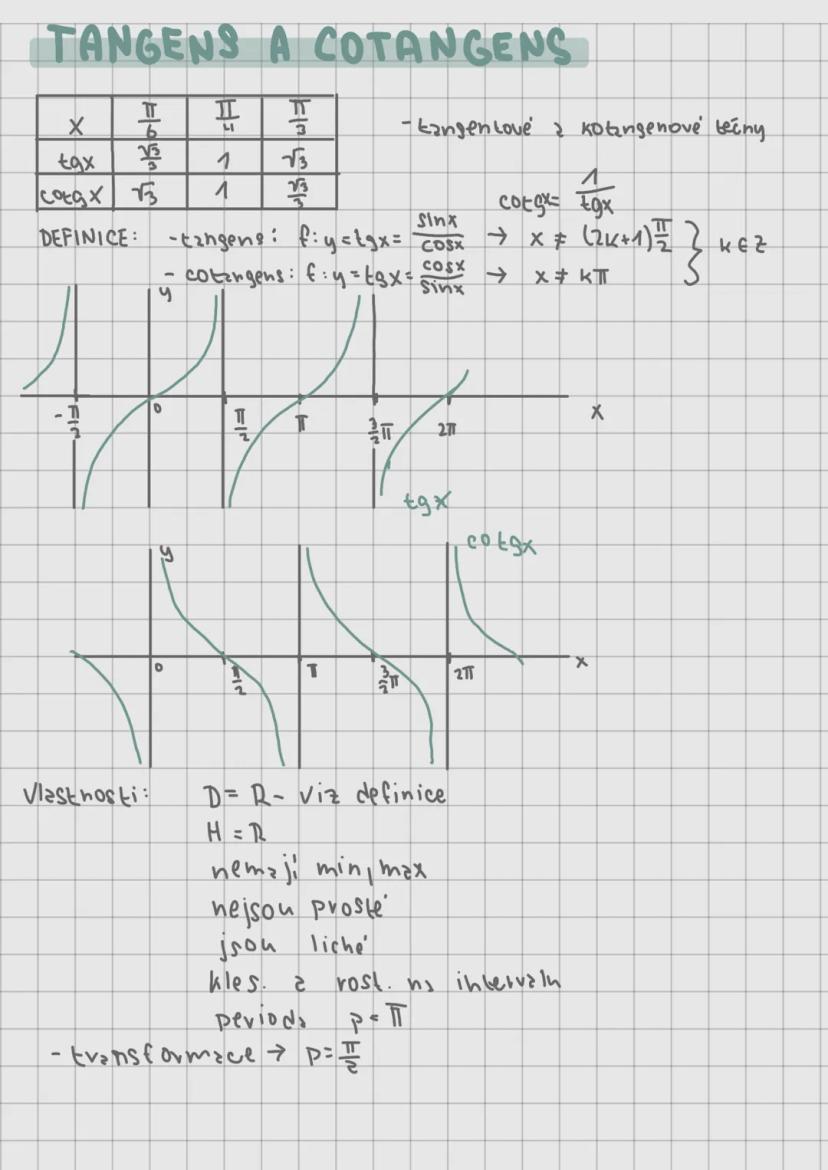 TANGENS A COTANGENS
x π/6 π/4 π/3
tgx √3/3 1 √3
cotgx √3 1 √3/3
- tangentové a kotangenové tečny
cotgx = 1/tgx
DEFINICE: - tangens: f: y = tgx = sinx/cosx → x ≠ (2k+1)π/2 } k ∈ Z
- cotangens: f: y = tgx = cosx/sinx → x ≠ kπ
y
-π/2 0 π/2 π 3/2π 2π x
tgx
cotgx
y
0 π/2 π 3/2π 2π x
Vlastnosti: D = R - viz definice
H = R
nemají min, max
nejsou prosté
jsou liché
kles. a rost. na intervalu
perioda p = π
- transformace → p = π/2